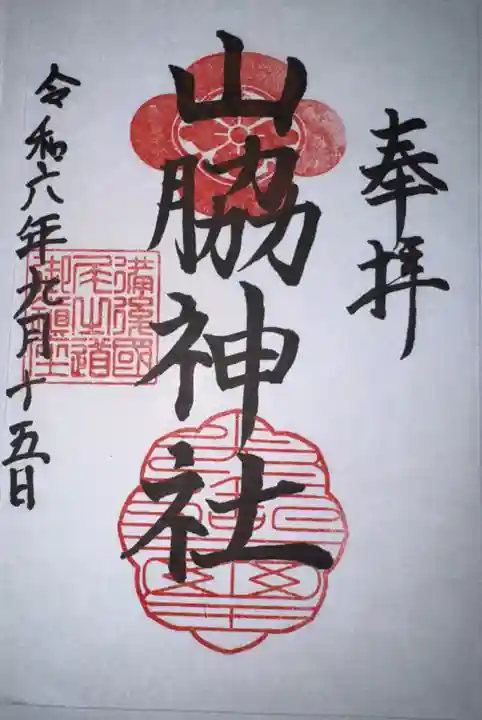 奉拝
山脇神社
備後國
尾之道
御鎮座
令和六年九月十五日